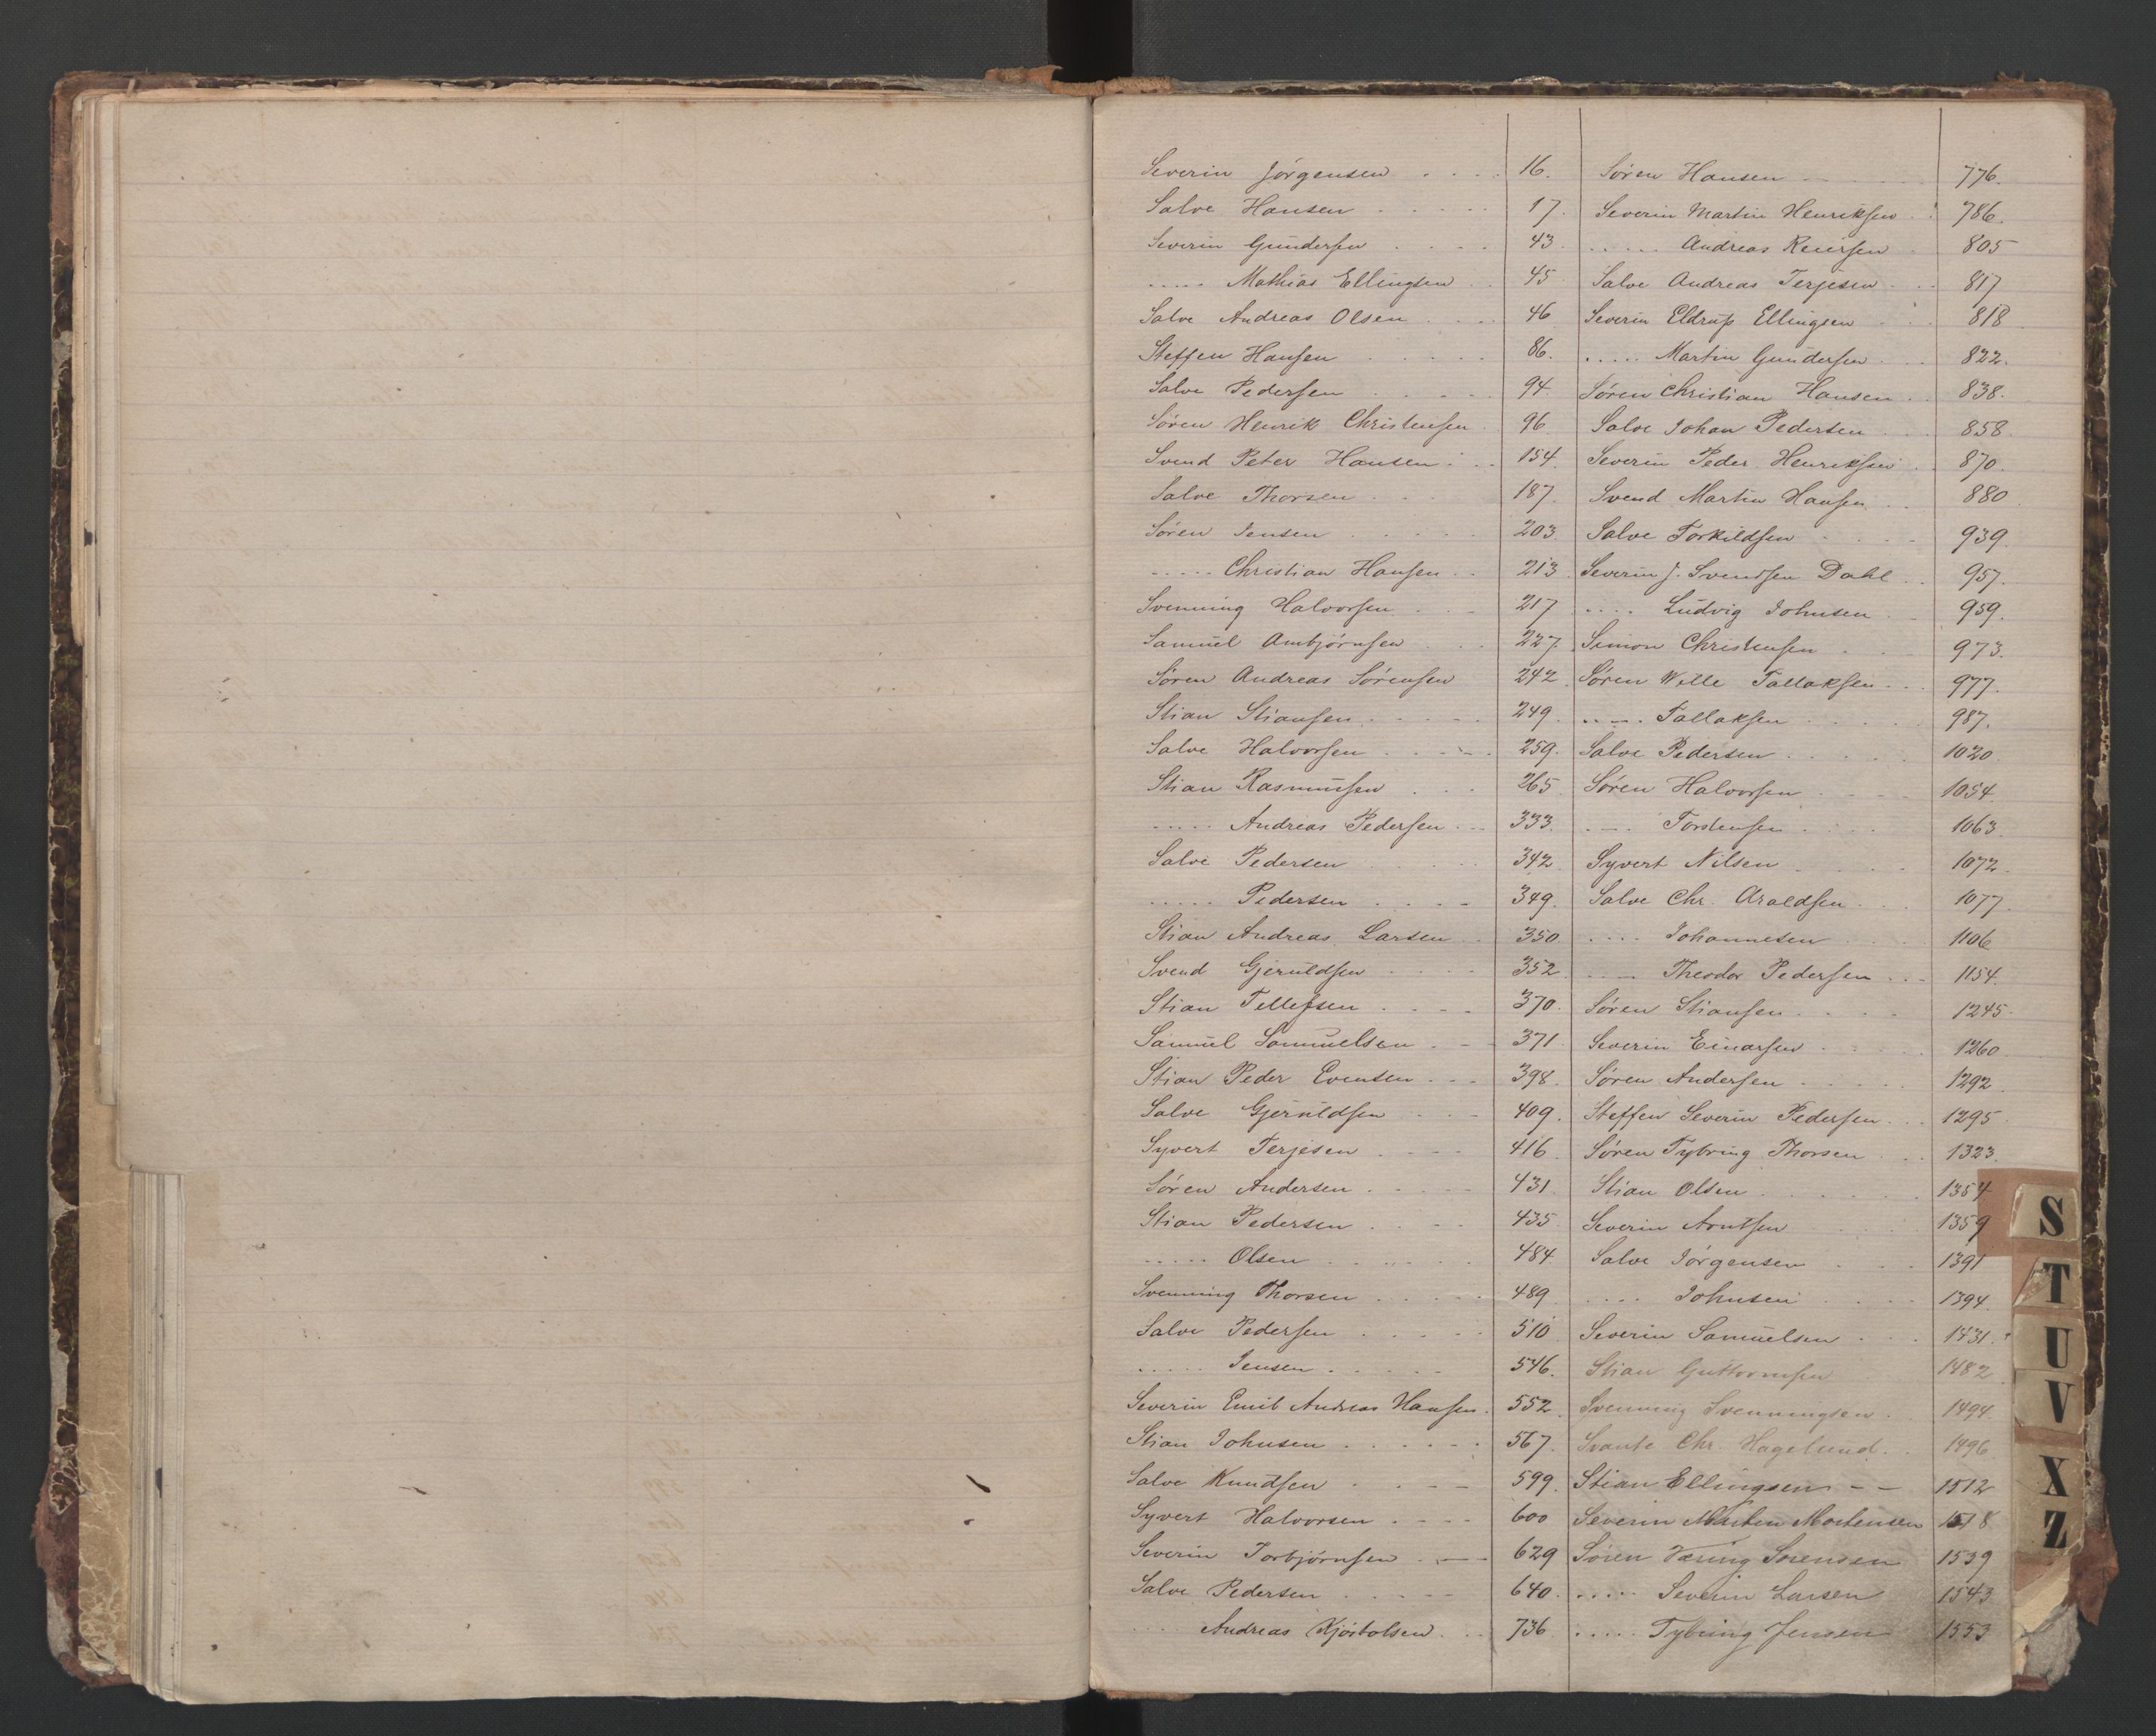 Severin Jörgensen . . . . 16.
Salve Hansen . . . . . 17.
Severin Gundersen . . . . 43
..... Mathias Ellingsen . . 45
Salve Andreas Olsen . . . 46
Steffen Hansen . . . . . 86.
Salve Pedersen . . . . . 94.
Sören Henrik Christensen . 96
Svend Peter Hansen . . . 154.
Salve Thorsen . . . . 187.
Sören Jensen . . . . . 203.
..... Christian Hansen . . 213
Svenning Halvorsen . . . 217
Samuel Ambjörnsen . . . 227.
Sören Andreas Sörensen 242
Stian Stiansen . . . . . 249.
Salve Halvorsen . . . . 259.
Stian Rasmussen . . . 265
..... Andreas Pedersen . . 333.
Salve Pedersen . . . . 342
..... Pedersen . . . . 349.
Stian Andreas Larsen . . 350
Svend Gjeruldsen . . . . 352
Stian Tellefsen . . . . 370.
Samuel Samuelsen . - - 371
Stian Peder Evensen . . . 398.
Salve Gjeruldsen . . . 409.
Syvert Terjesen . . . . 416.
Sören Andersen . . . . 431
Stian Pedersen . . . . 435
..... Olsen . . . . . . 484.
Svenning Thorsen . . . . . 489
Salve Pedersen . . . . . 510
..... Jensen . . . . . 546.
Severin Emil Andreas Hansen . 552
Stian Johnsen . . . . . . 567.
Salve Knudsen . . . . 599.
Syvert Halvorsen . . . . 600
Severin Torbjörnsen . . — 629
Salve Pedersen . . . . 640.
..... Andreas Kjöstolsen . . 736
Sören Hansen . . . 776.
Severin Martin Henriksen . . 786.
..... Andreas Reiersen . 805
Salve Andreas Terjesen . . 817
Severin Eldrup Ellingsen . . 818
..... Martin Gundersen . . 822.
Sören Christian Hansen . . 838.
Salve Johan Pedersen . . . 858.
Severin Peder Henriksen . . 870.
Svend Martin Hansen . . 880
Salve Torkildsen . . . . 939.
Severin J. Svendsen Dahl . . 957.
.... Ludvig Johnsen . . 959.
Simon Christensen . . 973.
Sören Wille Tallaksen . . . 977.
..... Tallaksen . . . . . 987.
Salve Pedersen . . . . . 1020
Sören Halvorsen . . . . 1054.
.... Torstensen . . . . 1063.
Syvert Nilsen . . . . . 1072.
Salve Chr. Araldsen . . . 1077.
.... Johannesen . . 1106
.... Theodor Pedersen . . . 1154.
Sören Stiansen . . . . 1245.
Severin Einarsen . . . . 1260.
Sören Andersen . . . . . 1292
Steffen Severin Pedersen . . . 1295
Sören Tybring Thorsen . . . 1323.
Stian Olsen . . . . . . 1354
Severin Arntsen . . . . 1359
Salve Jörgensen . . . . 1391
.... Johnsen . . . . 1394.
Severin Samuelsen . . . 1431.
Stian Guttormsen 1482
Svenning Svenningsen . 1494.
Svante Chr. Hagelund . . 1496
Stian Ellingsen - - 1512
Severin Martin Mortensen 1518
Sören Væring Sørensen 1539
..... Severin Larsen 1543
..... Tybring Jensen 1553
S
T
U
V
X
Z